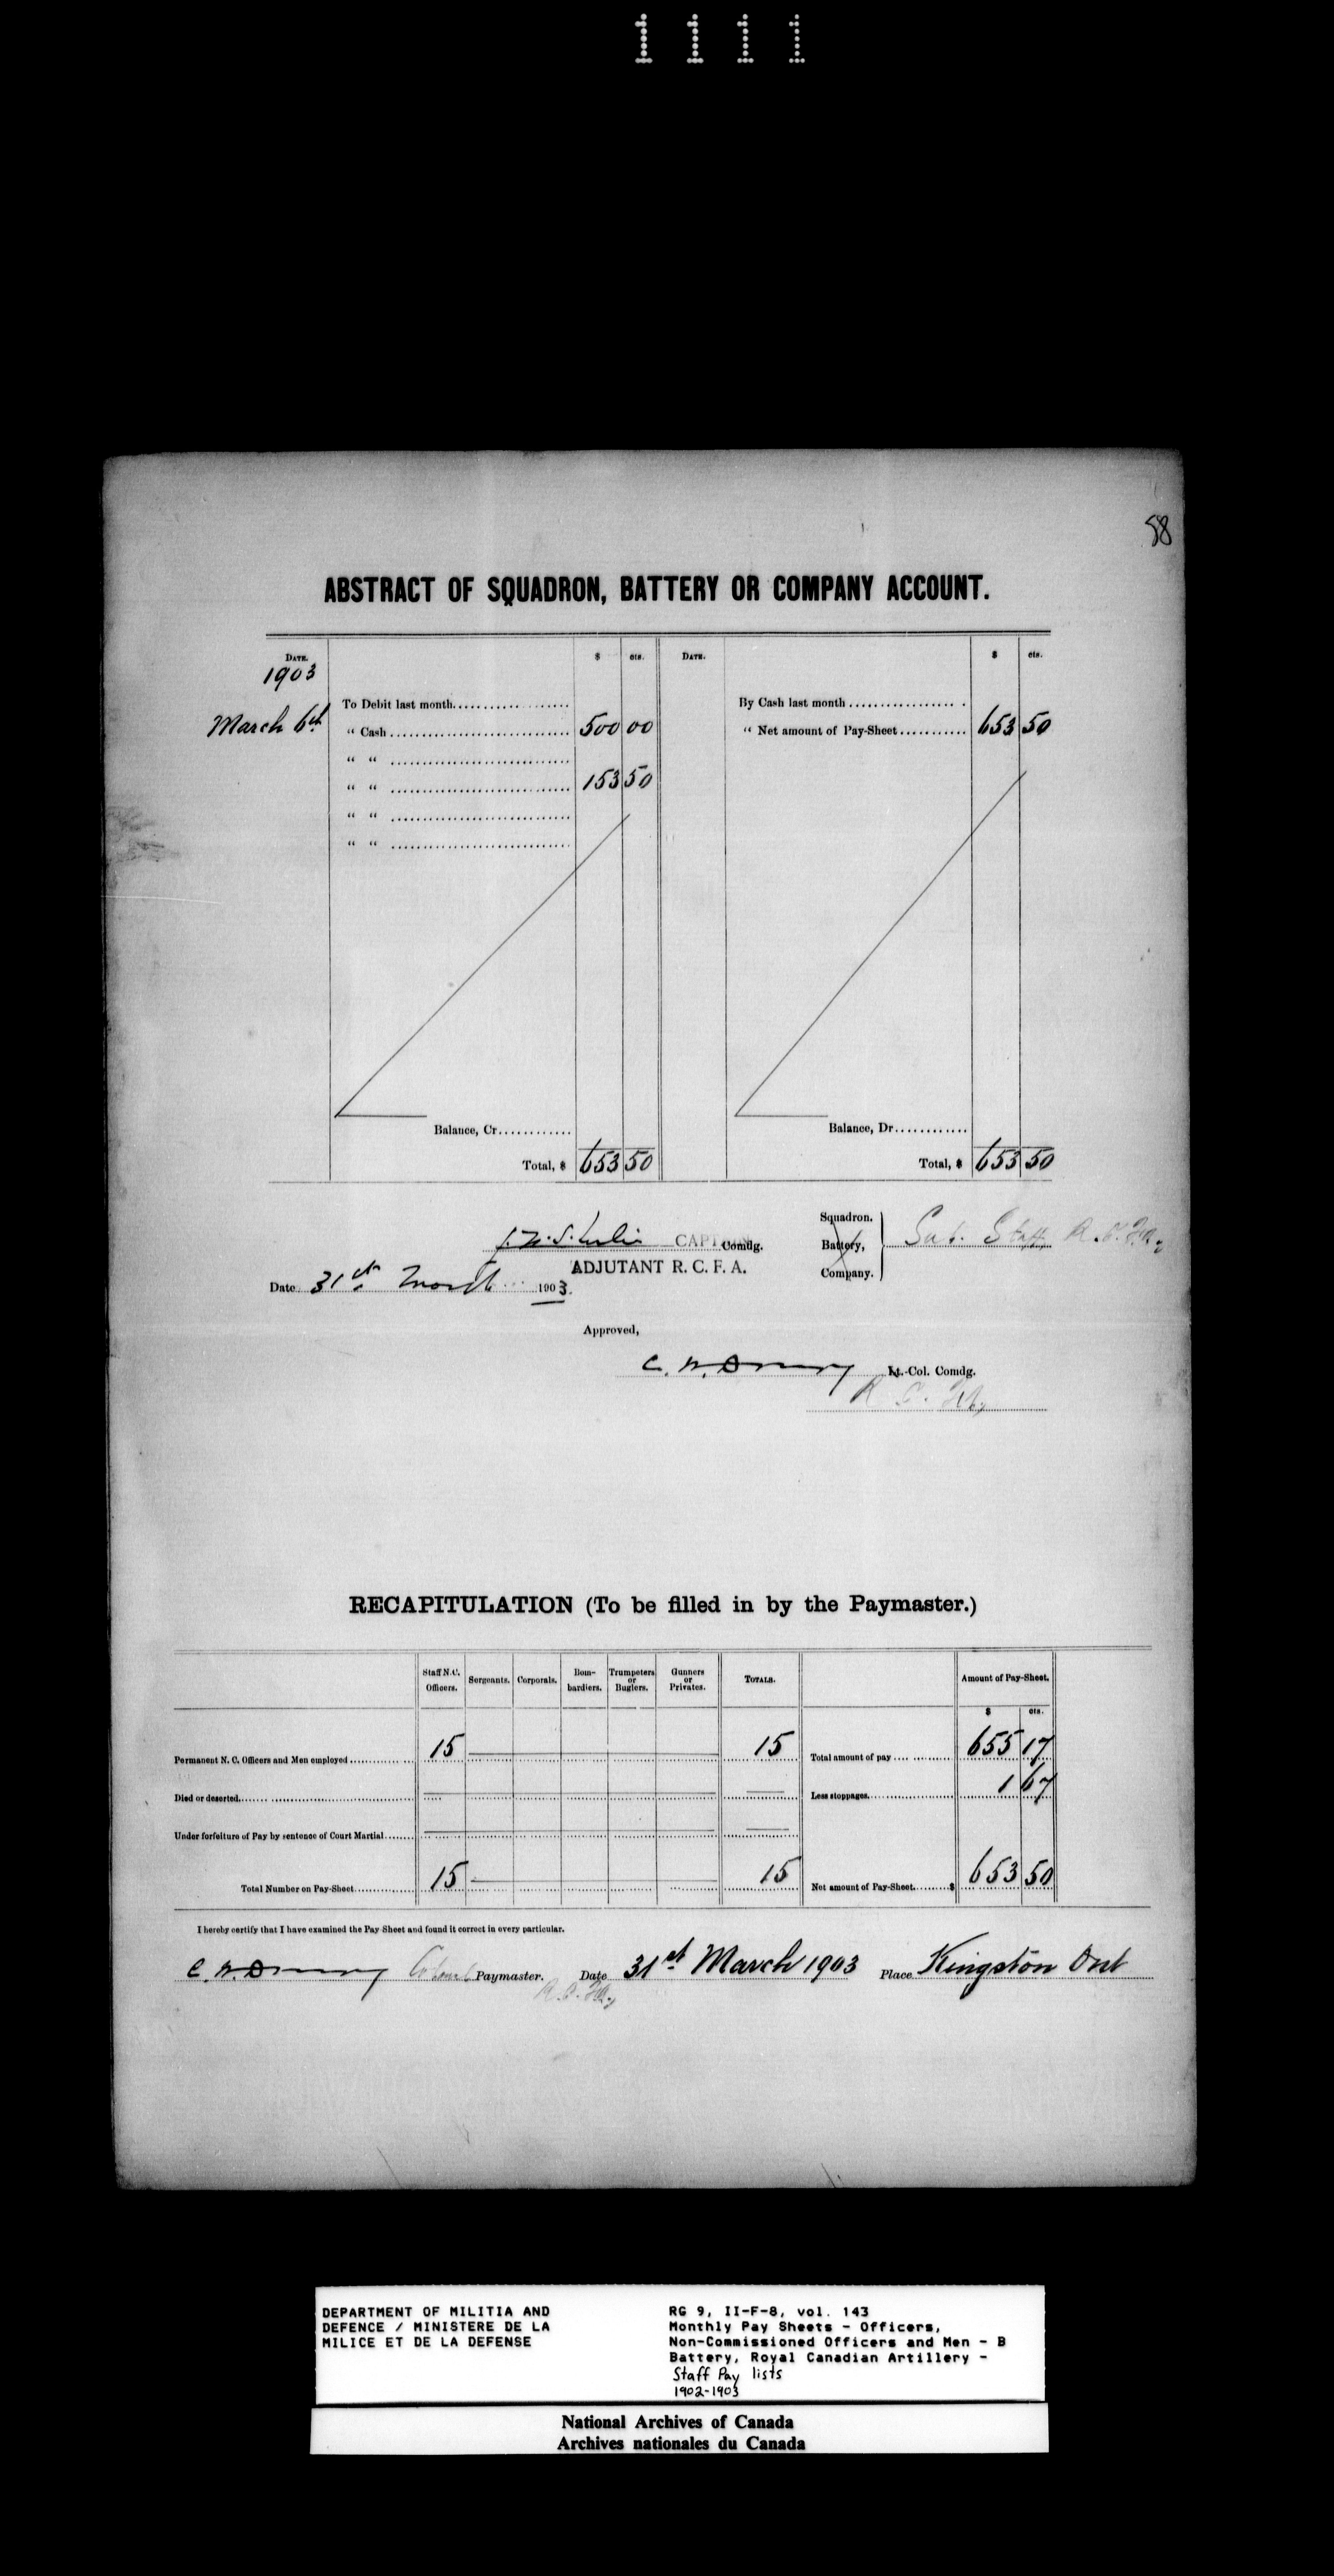 1111
58
ABSTRACT OF SQUADRON, BATTERY OR COMPANY ACCOUNT.
DATE. $ cts. DATE. $ cts.
1903
To Debit last month By Cash last month
March 6th " Cash 500 00 " Net amount of Pay-Sheet 653 50
" "
" " 153 50
" "
" "
Balance, Cr. Balance, Dr.
Total, $ 653 50 Total, $ 653 50
CAPTAIN Comdg.
ADJUTANT R. C. F. A.
Squadron.
Battery,
Company.
Staff R.C.F.A.
Date 31st March 1903.
Approved,
C. W. Drury Lt.-Col. Comdg.
RECAPITULATION (To be filled in by the Paymaster.)
Staff N.C. Officers. Sergeants. Corporals. Bom-bardiers. Trumpeters or Buglers. Gunners or Privates. TOTALS. Amount of Pay-Sheet.
$ cts.
Permanent N. C. Officers and Men employed 15 15 Total amount of pay 655 17
Died or deserted Less stoppages 1 67
Under forfeiture of Pay by sentence of Court Martial
Total Number on Pay-Sheet 15 15 Net amount of Pay-Sheet $ 653 50
I hereby certify that I have examined the Pay-Sheet and found it correct in every particular.
C. W. Drury Colonel Paymaster. Date 31st March 1903 Place Kingston Ont
R.C.F.A.
DEPARTMENT OF MILITIA AND
DEFENCE / MINISTERE DE LA
MILICE ET DE LA DEFENSE
RG 9, II-F-8, vol. 143
Monthly Pay Sheets - Officers,
Non-Commissioned Officers and Men - B
Battery, Royal Canadian Artillery -
Staff Pay lists
1902-1903
National Archives of Canada
Archives nationales du Canada